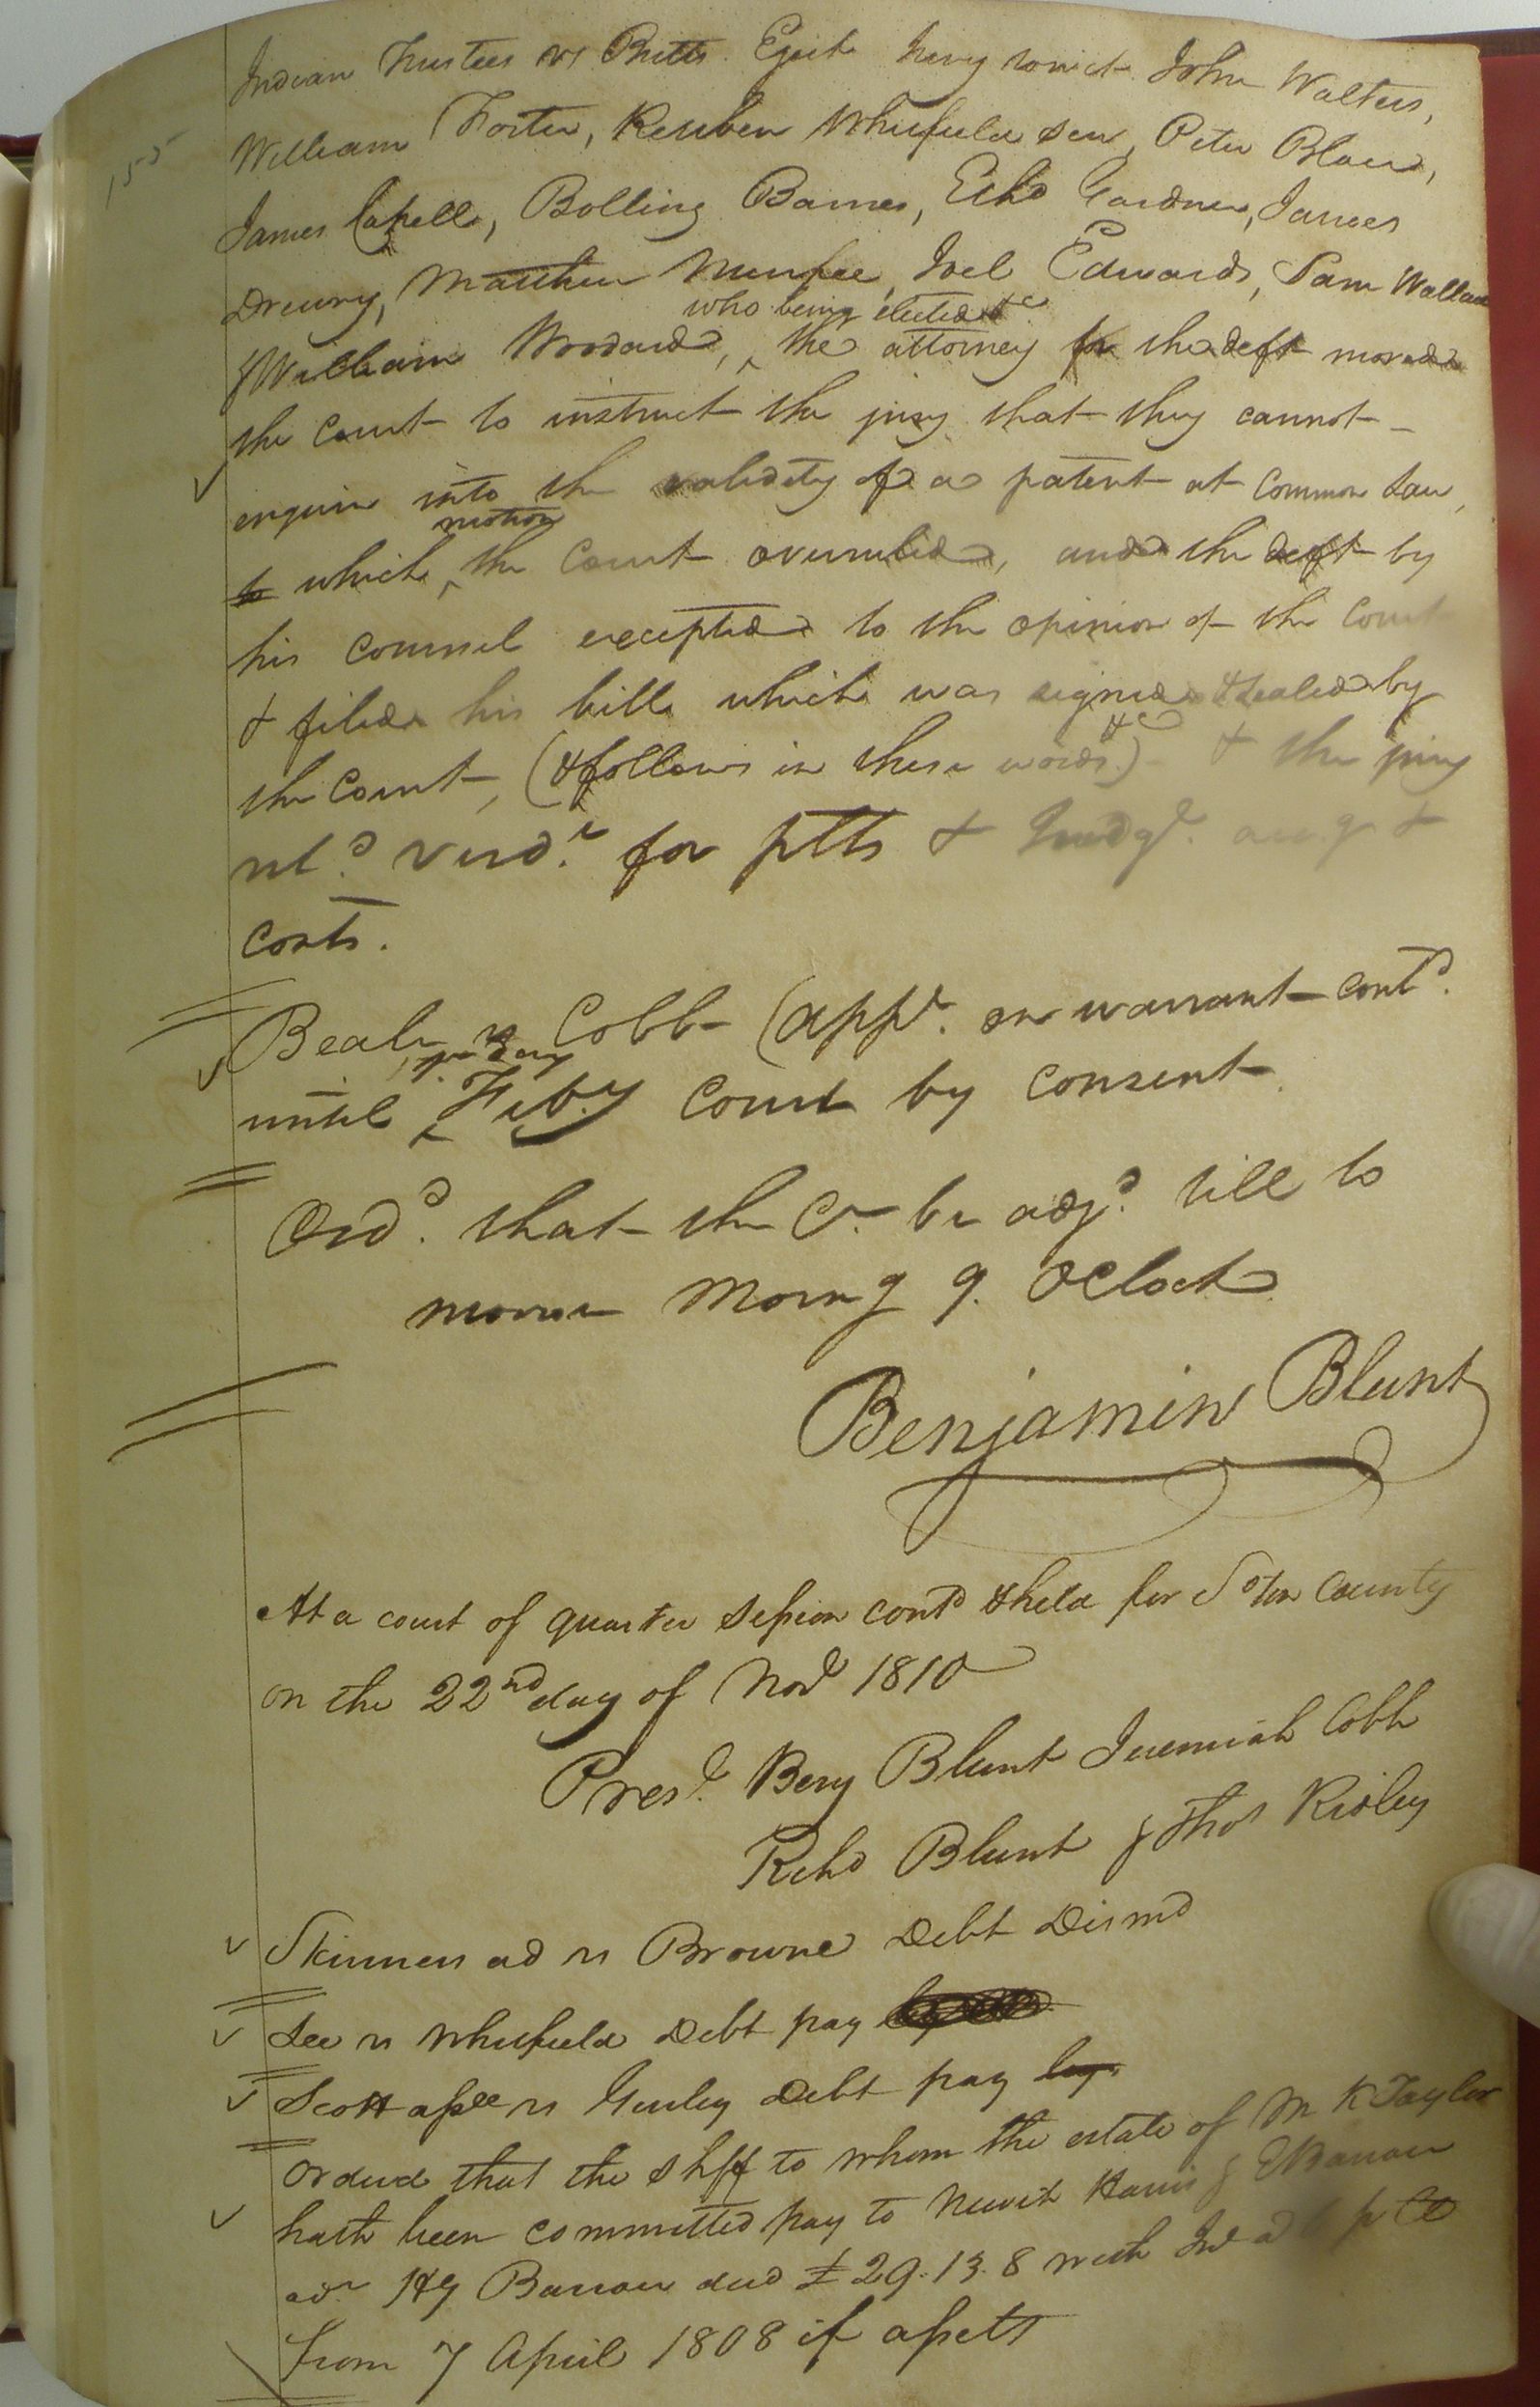 155
Indian Trustees vs Britts Eject. Jury towit John Walters,
William Foster, Reuben Whitfield sen, Peter Blow,
James Capell, Bolling Barnes, Edwd Gardner, James
Drewry, Matthew Murfee, Joel Edwards, Sam Wallace
& William Woodard, who being elected &c the attorney for the deft moved
the court to instruct the jury that they cannot
enquire into the validity of a patent at common law,
to which motion the court overruled, and the deft by
his counsel excepted to the opinion of the court
& filed his bill which was signed & sealed by
the court, (& follows in these words &c) & the jury
retd verdt for pltfs & Judgt. &
costs.
Beale vs Cobb (appl. on warrant contd.
until 1st day Feby court by consent
Ord. that the Ct. be adjd. till to
morrow Morng 9. OClock
Benjamin Blunt
At a court of quarter session contd & held for Soton County
on the 22nd day of Novr 1810
Prest. Benj Blunt Jeremiah Cobb
Richd Blunt & Thos Ridley
Skinners ad vs Browne Debt Dismd
Lee vs Whitfield Debt pay
Scott assee vs Gurley Debt pay
Ordered that the shff to whom the estate of M K Taylor
hath been committed pay to Newit Harris & E Barrow
adr Hy Barrow decd £29.13.8 with Int
from 7 April 1808 if assetts